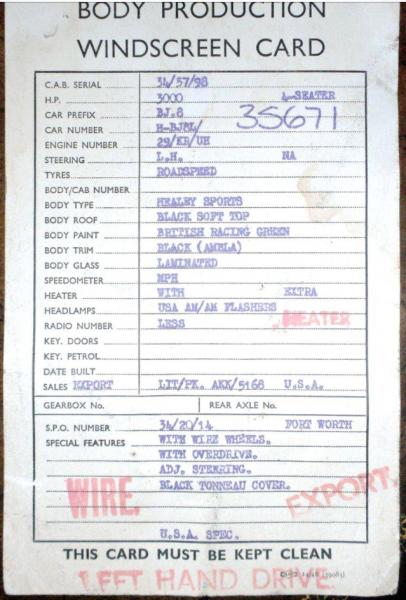 BODY PRODUCTION
WINDSCREEN CARD
C.A.B. SERIAL 34/57/98
H.P. 3000 4-SEATER
CAR PREFIX BJ.8
CAR NUMBER H-BJ8L/ 35671
ENGINE NUMBER 29/KR/UH
STEERING L.H. NA
TYRES ROADSPEED
BODY/CAB NUMBER
BODY TYPE HEALEY SPORTS
BODY ROOF BLACK SOFT TOP
BODY PAINT BRITISH RACING GREEN
BODY TRIM BLACK (AMBLA)
BODY GLASS LAMINATED
SPEEDOMETER MPH
HEATER WITH EXTRA
HEADLAMPS USA AM/AM FLASHERS HEATER
RADIO NUMBER LESS
KEY. DOORS
KEY. PETROL
DATE BUILT
SALES EXPORT LIT/PK. AKK/5168 U.S.A.
GEARBOX No. REAR AXLE No.
S.P.O. NUMBER 34/20/14 FORT WORTH
SPECIAL FEATURES WITH WIRE WHEELS.
WITH OVERDRIVE.
ADJ. STEERING.
BLACK TONNEAU COVER.
WIRE. EXPORT.
U.S.A. SPEC.
THIS CARD MUST BE KEPT CLEAN
LEFT HAND DRIVE